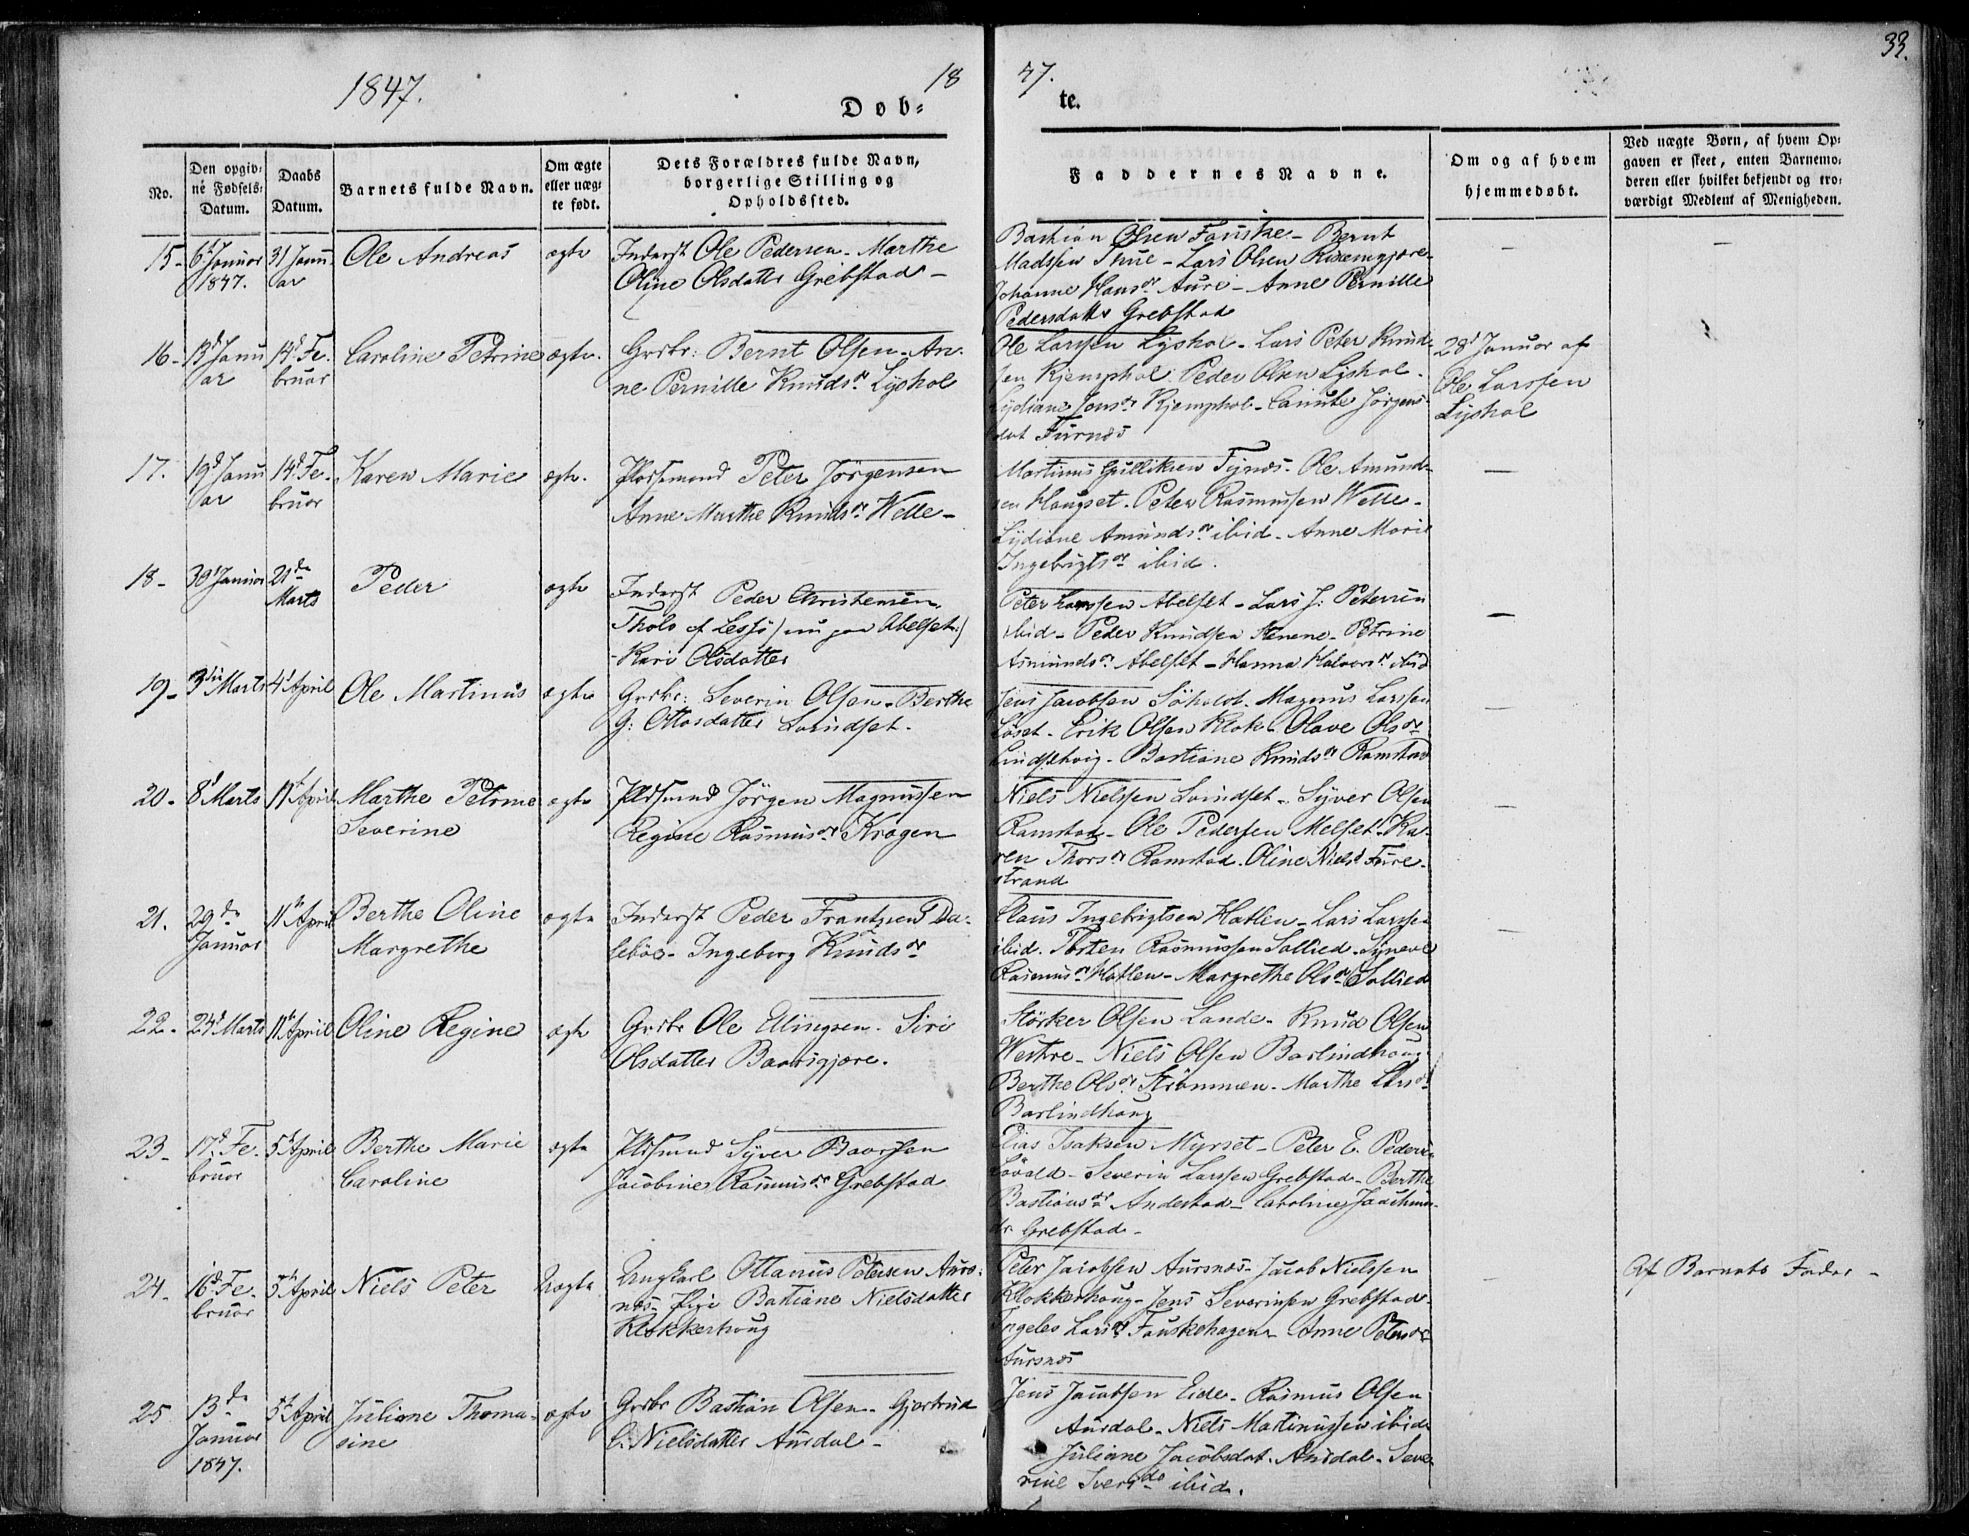 1847.
18
47.
33.
Døb-
te.
No.
Den opgiv-
ne Fødsels-
Datum.
Daabs
Datum.
Barnets fulde Navn.
Om ægte
eller uæg-
te født.
Dets Forældres fulde Navn,
borgerlige Stilling og
Opholdssted.
Faddernes Navne.
Om og af hvem
hjemmedøbt.
Ved uægte Børn, af hvem Op-
gaven er skeet, enten Barnemo-
deren eller hvilket bekjendt og tro-
værdigt Medlem af Menigheden.
15- 6t Januar 1847. 31 Janu-
ar
Ole Andreas
ægte
Inderst Ole Pedersen - Marthe
Oline Olsdatter Grebstad -
Bastian Olsen Fauske - Bernt
Madssen Thue - Lars Olsen
Johanne Hansdr Aure - Anne Pernille
Pedersdatter Grebstad
-
-
16- 13d Janu
ar
14d Fe-
bruar
Caroline Petrine
ægte.
Grbr: Bernt Olsen - An-
ne Pernille Knudsdr Lyshol
Ole Larssen Lyshol - Lars Peter Knud-
sen Kjemphol. Peder Olsen Lyshol -
Lydiane Jonsdr Kjemphol - Jørgens-
dat Furnæs
28d Januar af
Ole Larssen
Lyshol
17. 19d Janu
ar
14d Fe-
bruar
Karen Marie
ægte.
Pladsmand Peter Jörgensen
Anne Marthe Knudsdr Welle -
Martinus Gulliksen Tynæs - Ole Amund-
sen Haugset - Peter Rasmussen Welle -
Lydiane Amundsdr ibid - Anne Marie
Ingebrigtsdr ibid.
-
18- 30d Januar 21de
Marts
Peder
ægte
Inderst Peder Christensen
Tholv af Lesjö (nu paa Abelset:)
- Kari Olsdatter
Peter Larssen Abelset - Lars J: Petersen
ibid - Peder Knudsen Stenene - Petrine
Asmundsdr Abelset - Hanna Halvorsdr ibid
-
19- 3die Marts 4d April
Ole Martinus
ægte
Grbr: Severin Olsen - Berthe
G: Ottosdatter Suundset.
Jens Jacobsen Söholt - Magnus Larssen
Løset - Erik Olsen Klok - Olave Olsdr
- Bastiane Knudsdr Ramstad
-
20- 8d Marts 11t April
Marthe Petrine
Severine
ægte
Pladsmand Jörgen Magnussen
Regine Rasmusdr Kragen
Niels Nielssen Suundset - Syver Olsen
Ramstad - Ole Pedersen Melset - Ka-
ren Thorsdr Ramstad - Oline Nielsd Fure-
strand
-
21. 29de
Januar
11t April
Berthe Oline
Margrethe
ægte
Inderst Peder Frantzen Da-
leböe - Ingeborg Knudsdr
Claus Ingebrigtsen Hatlen - Lars Larssen
ibid. Torsten Rasmussen Sollied - Synneve
Rasmusdr Hatlen - Margrethe Olsdr Sollied
-
22- 24d Marts 11t April
Oline Regine
ægte
Grbr Ole Ellingsen - Siri
Olsdatter Baarsgjære.
Störker Olsen Lande - Knud Olsen
Westre - Niels Olsen Barlindhaug
Berthe Olsdr Strömmen - Marthe Larsdr
Barlindhaug
23- 17d Fe-
bruar
5t April
Berthe Marie
Caroline
ægte
Pladsmand Syver Baarssen
Jacobine Rasmusdr Grebstad
Elias Isaksen Myrset - Peter E. Pedersen
Løvold - Severin Larssen Grebstad - Berthe
Bastiansdr Andestad - Caroline Joachims-
dr Grebstad -
24- 16d Fe-
bruar
5t April
Niels Peter
Uægte
Ungkarl Ottanus Petersen Aurs-
næs - Pige Bastiane Nielsdatter
Klokkerhoug
Peter Jacobsen Aursnæs - Jacob Nielssen
Klokkerhoug - Jens Severinsen Grebstad -
Ingeleo Larsdr Fauskehagen - Anne Petersdr
Aursnæs
-
Af Barnets Fader -
25 13de
Januar
1847.
5t April
Juliane Thoma-
sine
ægte
Grbr Bastian Olsen - Gjertrud
E: Nielsdatter Aursdal -
Jens Jacobsen Eide - Rasmus Olsen
Aursdal - Niels Martinussen ibid
Juliane Jacobsdat. Aursdal - Seve-
rine Iversdr ibid.